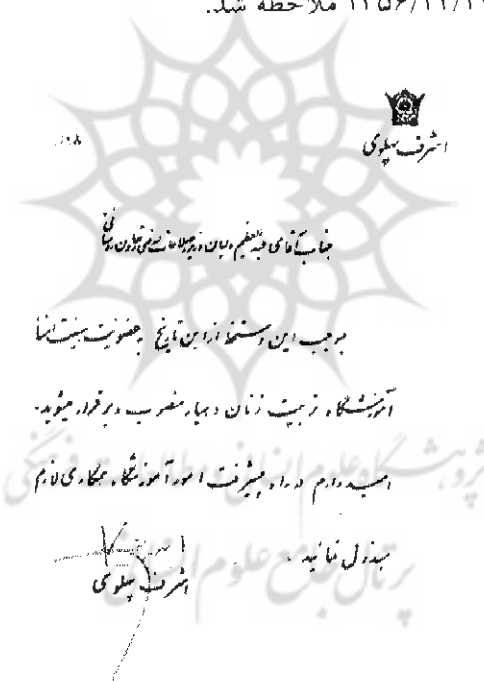 ملاحظه شد.
اشرف پهلوی
جناب آقای عبدالعظیم ولیان وزیر اصلاحات ارضی و تعاون روستائی
بموجب این دستخط از این تاریخ بعضویت هیئت امنا
آموزشگاه تربیت زنان دهیار منصوب و برقرار میشوید.
امیدوارم در راه پیشرفت امور آموزشگاه همکاری لازم
مبذول نمائید.
اشرف پهلوی
پژوهشگاه علوم انسانی و مطالعات فرهنگی
پرتال جامع علوم انسانی